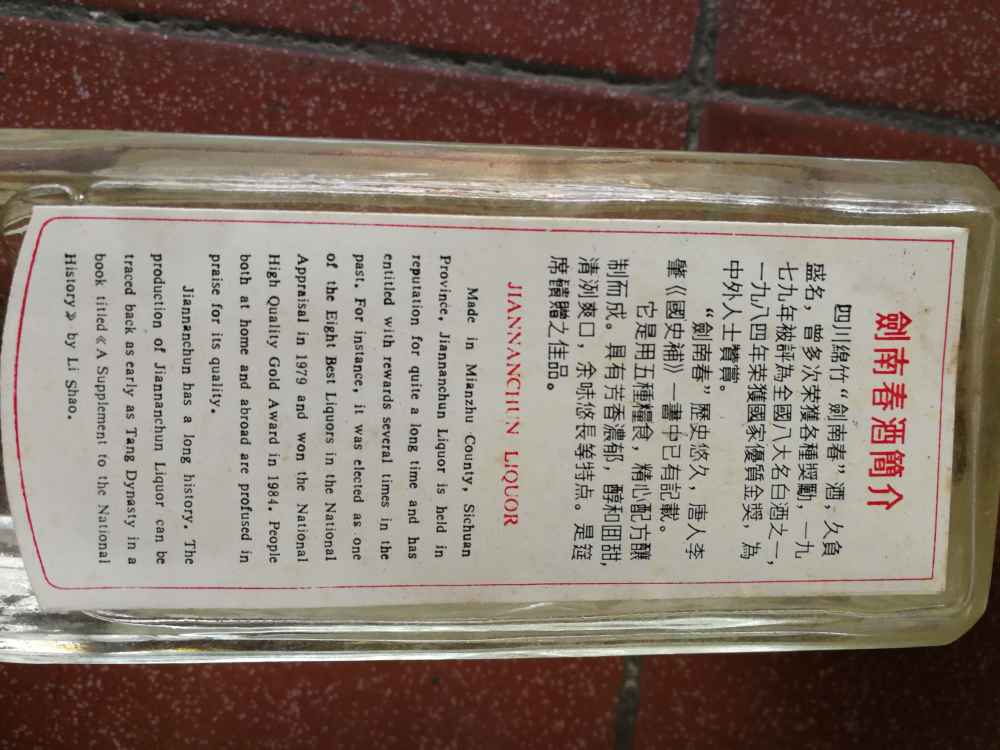 劍南春酒簡介
四川綿竹“劍南春”酒，久負
盛名，曾多次荣獲各種獎勵，一九
七九年被評為全國八大名白酒之一，
一九八四年荣獲國家優質金獎，為
中外人士贊賞。
“劍南春”歷史悠久，唐人李
肇《國史補》一書中已有記載。
它是用五種糧食，精心配方釀
制而成。具有芳香濃郁，醇和回甜，
清洌爽口，余味悠長等特点。是筵
席饋贈之佳品。
JIANNANCHUN LIQUOR
Made in Mianzhu County, Sichuan
Province, Jiannanchun Liquor is held in
reputation for quite a long time and has
entitled with rewards several times in the
past, For instance, it was elected as one
of the Eight Best Liquors in the National
Appraisal in 1979 and won the National
High Quality Gold Award in 1984. People
both at home and abroad are profused in
praise for its quality.
Jiannanchun has a long history. The
production of Jiannanchun Liquor can be
traced back as early as Tang Dynasty in a
book titled 《A Supplement to the National
History》 by Li Shao.